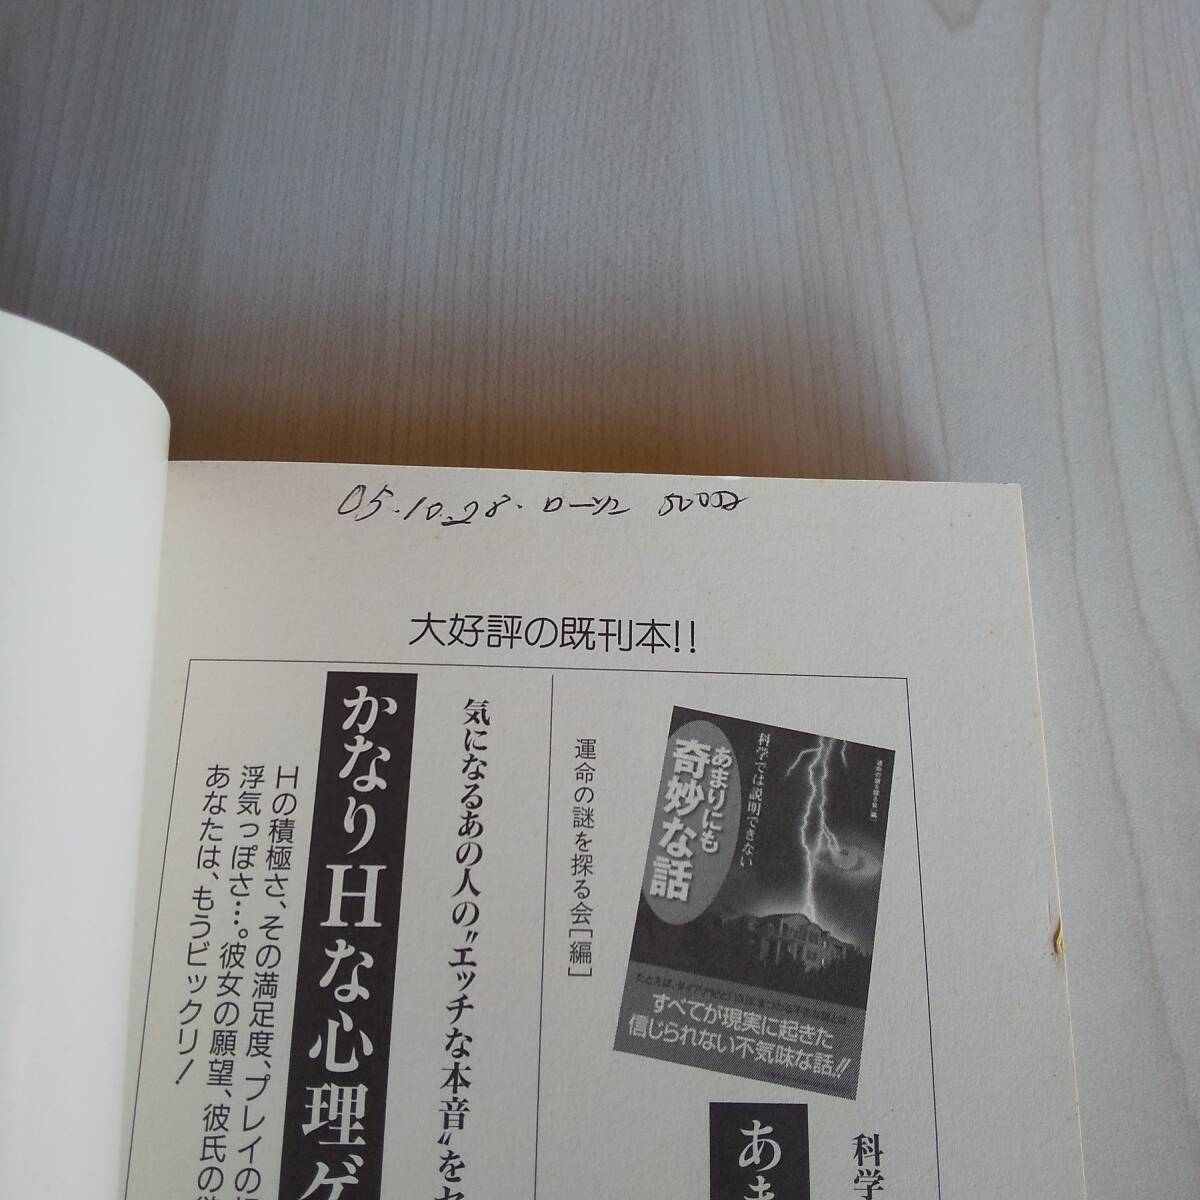 05.10.28.ローソン
大好評の既刊本!!
科学
あま
運命の謎を探る会[編]
科学では説明できない
あまりにも
奇妙な話
運命の謎を探る会[編]
すべてが現実に起きた
信じられない不気味な話!!
気になるあの人の"エッチな本音"をセ
かなりHな心理ゲ
Hの積極さ、その満足度、プレイの
浮気っぽさ…。彼女の願望、彼氏の
あなたは、もうビックリ!